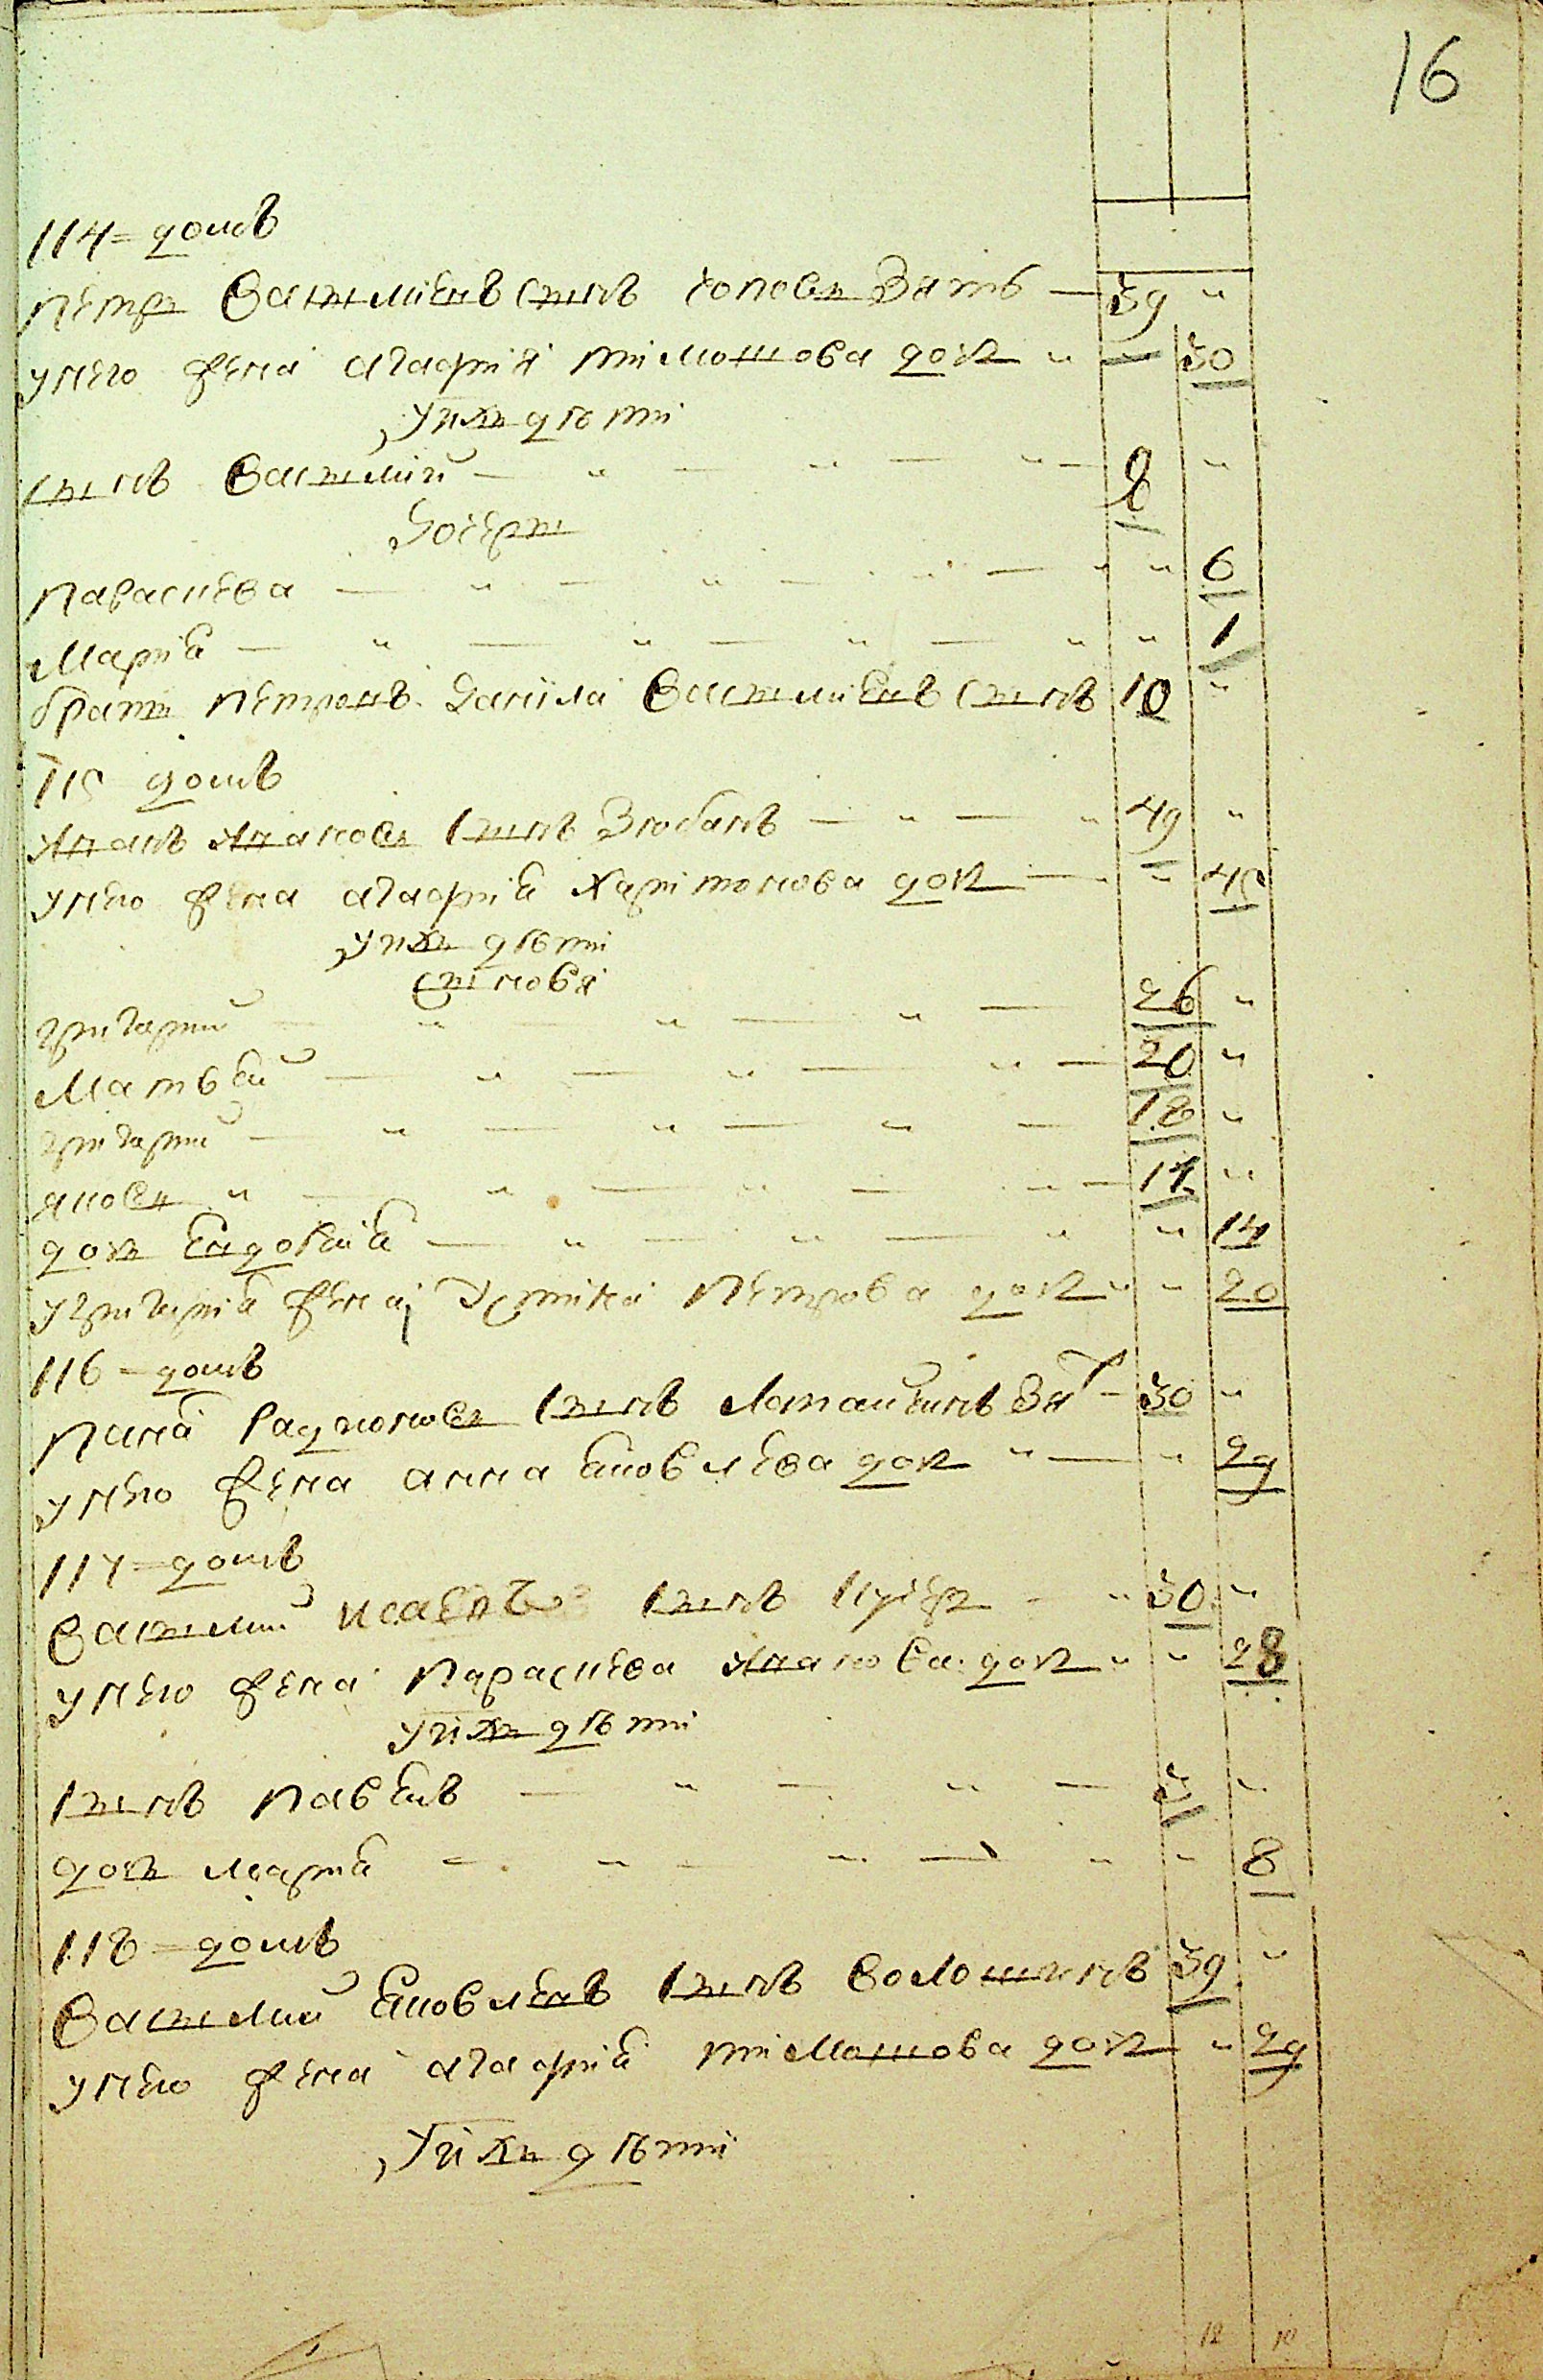 16
114 = домъ
Петръ Василіевъ сынъ Поповъ зять — 39 "
у него жена Агафія Тимошова дочь " — 30
у ихъ дѣти
сынъ Василій — " — " — " — 8 "
дочери
Параскева — " — " — " — " " 6
Марія — " — " — " — " " 1
братъ Петровъ Даніла Василіевъ сынъ 10 "
115 домъ
Иванъ Ивановъ сынъ Зюбанъ — " — " 49 "
у него жена Агафія Харітонова дочь — " 45
у ихъ дѣти
сыновя
Григорий — " — " — " — 26 "
Матвей — " — " — " — 20 "
Григорий — " — " — " — 18 "
Яковъ " — " — " — " — 17 "
дочь Евдокия — " — " — " " 14
у Григория жена Петрова дочь " " 20
116 = домъ
Родионовъ сынъ зят — 30 "
у него жена Анна Яковлева дочь " — " 29
117 = домъ
Василий Исаевъ сынъ — " 30 "
у него жена Параскева Иванова дочь " " 28
у ихъ дѣти
сынъ Павелъ — " — " — 3 "
дочь Марія — " — " — " " 8
118 = домъ
Василий Яковлевъ сынъ Волошинъ 39 "
у него жена Агафия Тимошова дочь " 29
у ихъ дѣти
12 10